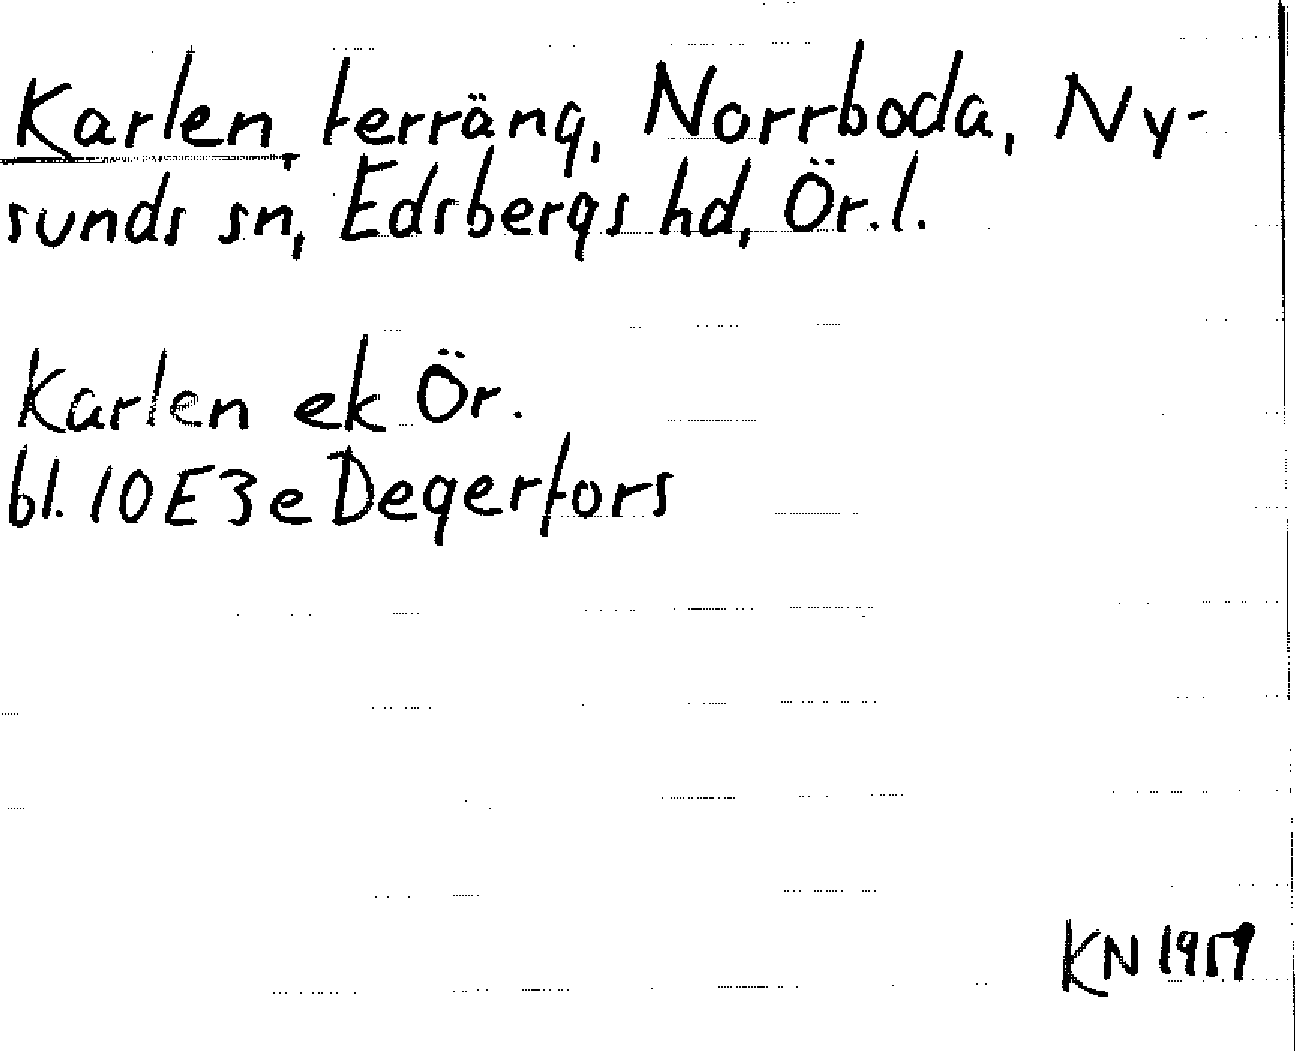 Karlen, terräng, Norrboda, Ny-
sunds sn, Edsbergs hd, Ör.l.
Karlen ek Ör.
bl. 10E3e Degerfors
KN 1959